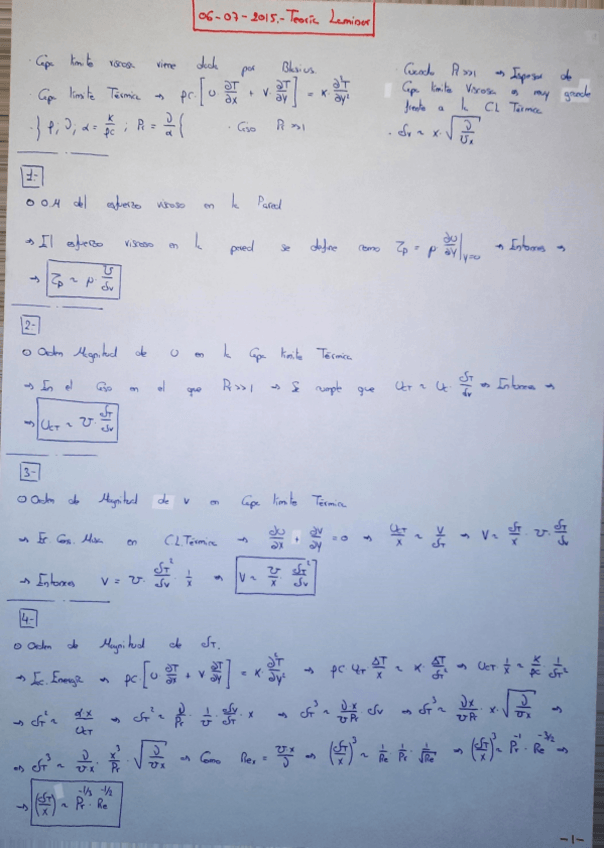 06-07-2015.- Teoría Laminar
· Capa límite viscosa viene dada por Blasius.
· Capa límite Térmica → ρc·[U ∂T/∂x + V·∂T/∂y] = K·∂²T/∂y²
· } ρ; ν, α = K/ρc ; Pr = ν/α { · Caso Pr >>1
Cuando Pr>>1 → Espesor de
Capa límite Viscosa es muy grande
frente a la CL Térmica
· δv ~ x·√(ν/Ux)
1-
○ O.M del esfuerzo viscoso en la Pared
→ El esfuerzo viscoso en la pared se define como τp = μ ∂U/∂y|y=0 → Entonces →
→ τp ~ μ·U/δv
2-
○ Orden Magnitud de U en la Capa límite Térmica
→ En el Caso en el que Pr>>1 → Se cumple que UCT ~ U·δT/δv → Entonces →
→ UCT ~ U·δT/δv
3-
○ Orden de Magnitud de V en Capa límite Térmica
→ Ec Cons. Masa en CL Térmica → ∂U/∂x + ∂V/∂y = 0 → UCT/x ~ V/δT → V ~ δT/x·U·δT/δv
→ Entonces V = U·δT²/δv·1/x → V ~ U/x·δT²/δv
4-
○ Orden de Magnitud de δT.
→ Ec. Energía → ρc·[U ∂T/∂x + V ∂T/∂y] = K·∂²T/∂y² → ρc UCT ΔT/x ~ K·ΔT/δT² → UCT 1/x ~ K/ρc 1/δT²
→ δT² ~ αx/UCT → δT² ~ ν/Pr·1/U·δv/δT·x → δT³ ~ νx/UPr δv → δT³ ~ νx/UPr·x·√(ν/Ux) →
→ δT³ ~ ν/Ux·x³/Pr·√(ν/Ux) → Como Rex = Ux/ν → (δT/x)³ ~ 1/Re 1/Pr 1/√Re → (δT/x)³ ~ Pr⁻¹ Re^-3/2 →
→ (δT/x) ~ Pr^-1/3·Re^-1/2
-1-